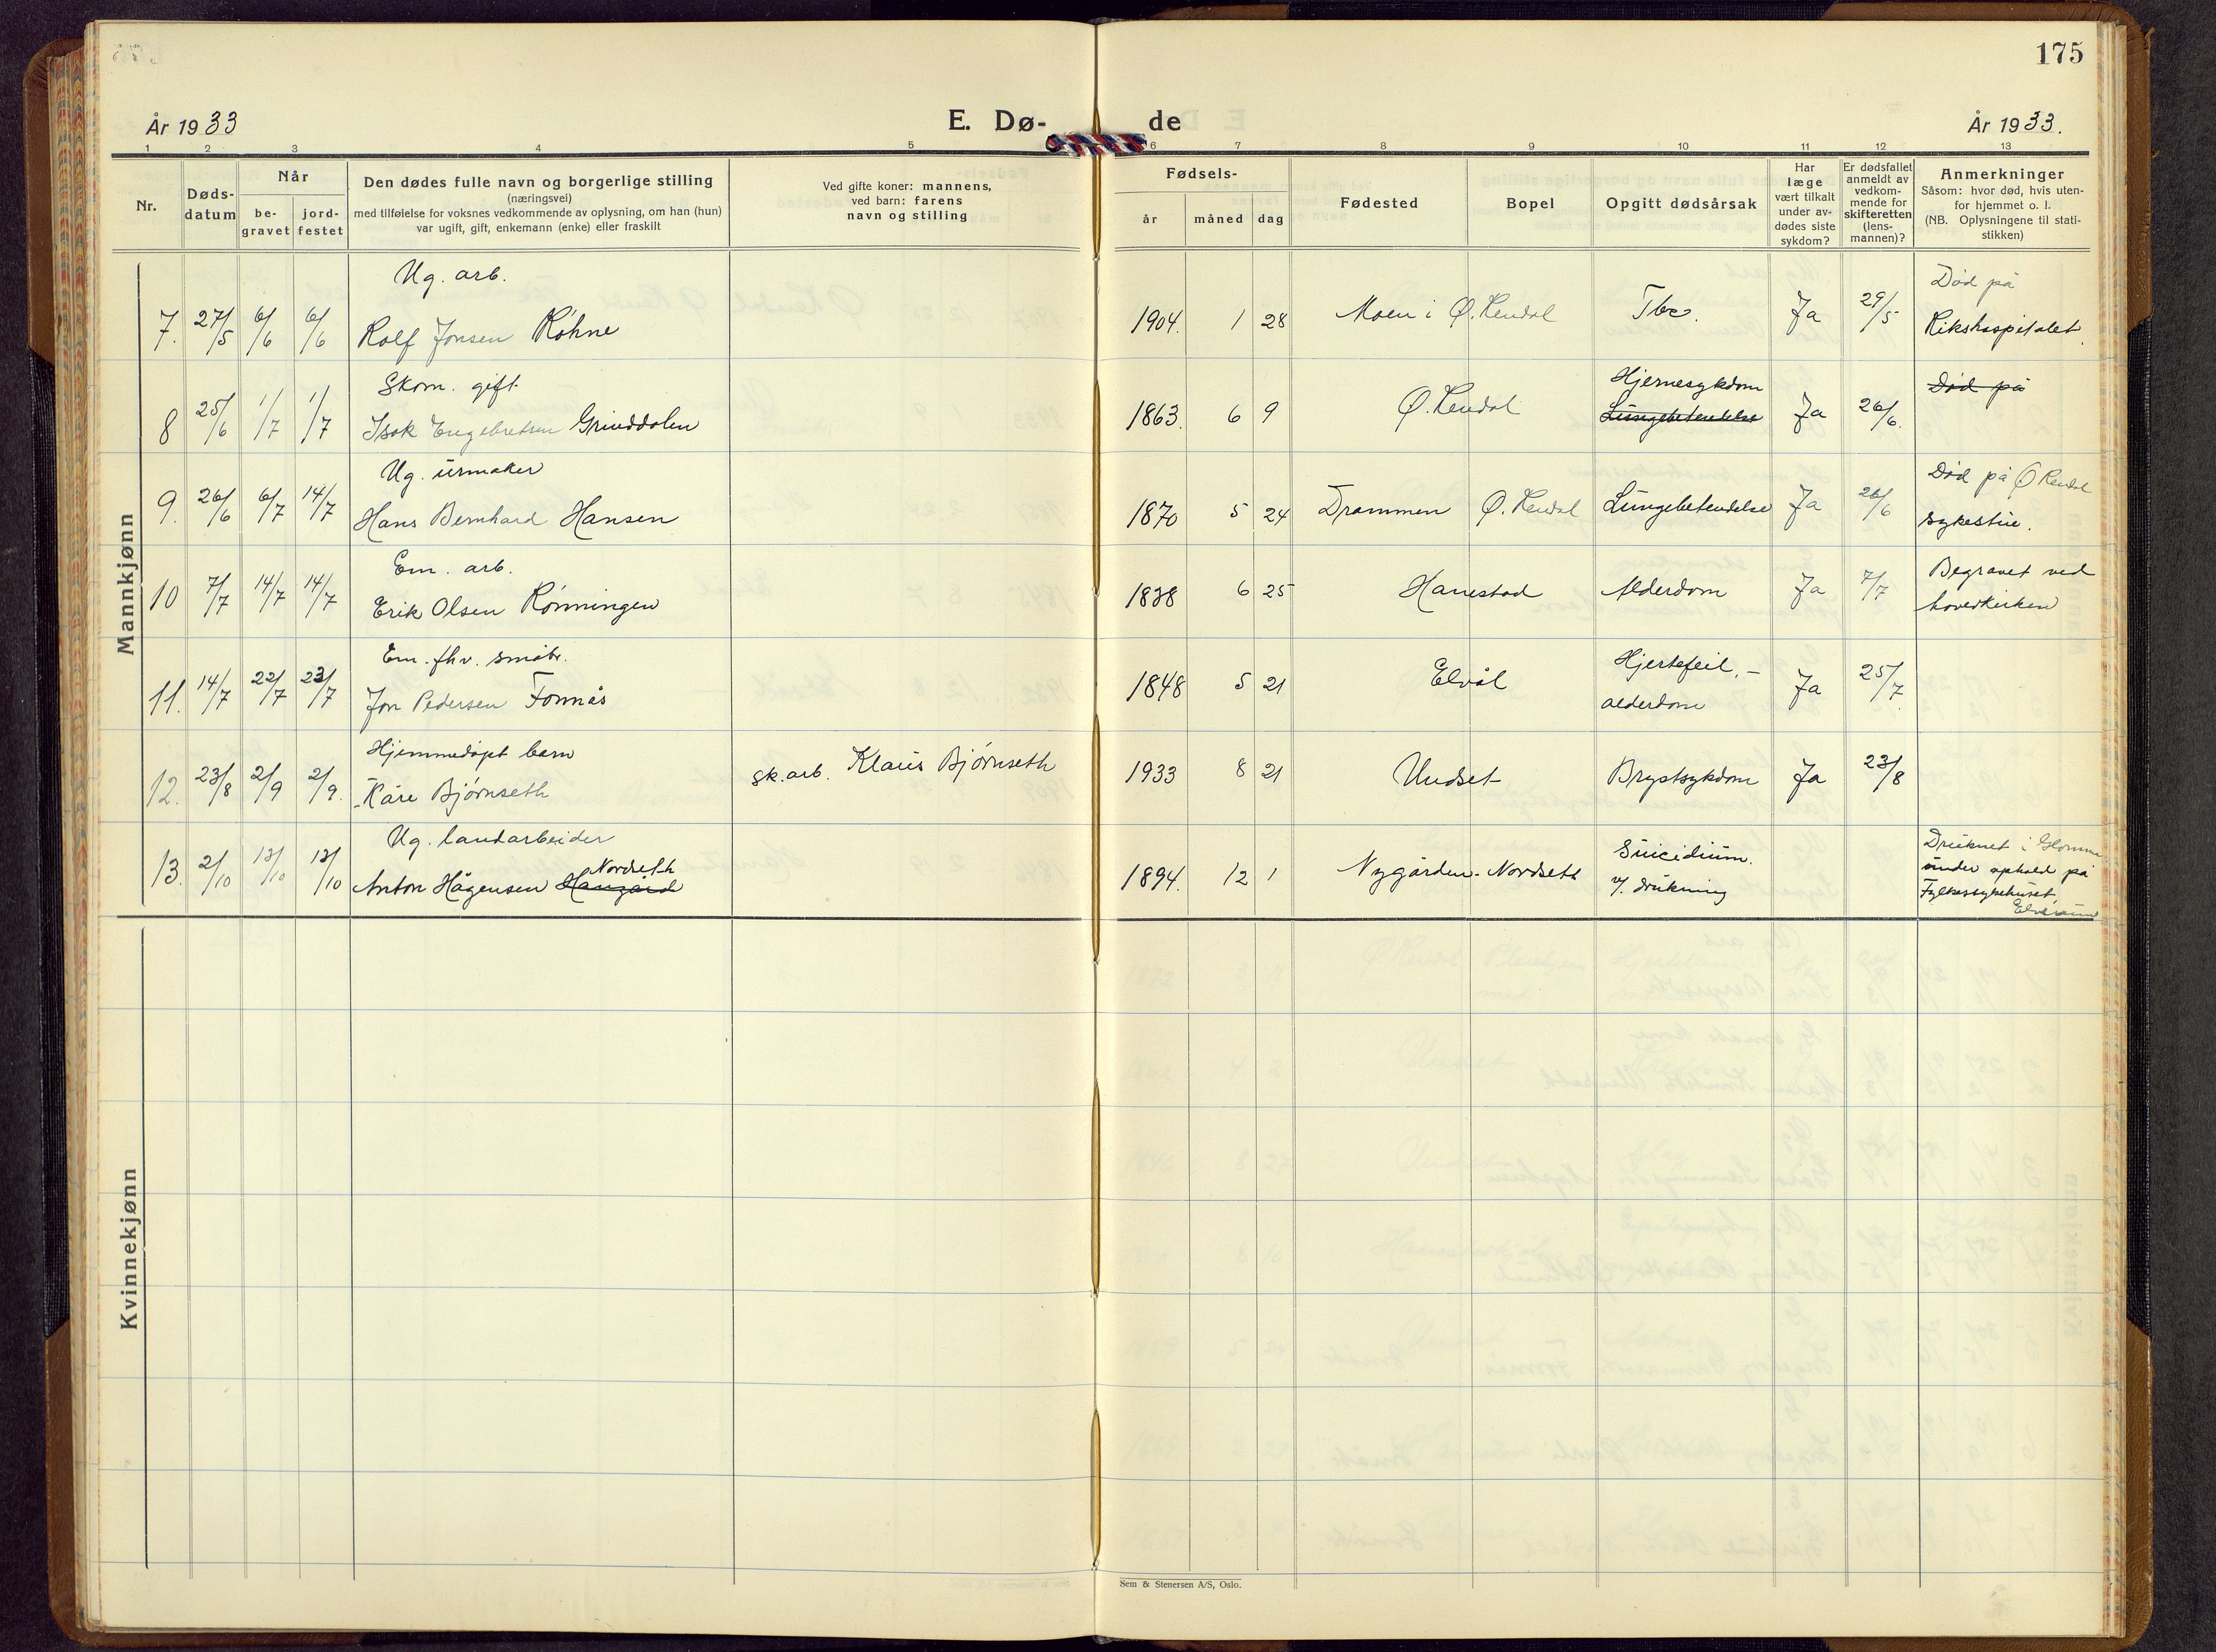 175
År 1933
E. Dø-
de
År 1933.
1 2 3 4 5 6 7 8 9 10 11 12 13
Nr.
Døds-
datum
Når
be-
gravet
jord-
festet
Den dødes fulle navn og borgerlige stilling
(næringsvei)
med tilføielse for voksnes vedkommende av oplysning, om han (hun)
var ugift, gift, enkemann (enke) eller fraskilt
Ved gifte koner: mannens,
ved barn: farens
navn og stilling
Fødsels-
år måned dag
Fødested
Bopel
Opgitt dødsårsak
Har
læge
vært tilkalt
under av-
dødes siste
sykdom?
Er dødsfallet
anmeldt av
vedkom-
mende for
skifteretten
(lens-
mannen)?
Anmerkninger
Såsom: hvor død, hvis uten-
for hjemmet o. l.
(NB. Oplysningene til stati-
stikken)
Mannkjønn
Ug. arb.
7. 27/5 6/6 6/6 Rolf Jonsen Røhne 1904. 1 28 Moen i Ø. Rendal Tbc. Ja 29/5
Død på
Rikshospitalet.
Skom. gift.
8 25/6 1/7 1/7 Isak Engebretsen Grinddalen 1863. 6 9 Ø. Rendal
Hjernesykdom
Lungebetendelse
Ja 26/6.
Død på
Ug. urmaker
9. 26/6 6/7 14/7 Hans Bernhard Hansen 1870 5 24 Drammen Ø. Rendal Lungebetendelse Ja 26/6
Død på Ø Rendal
sykestue.
Em. arb.
10 7/7 14/7 14/7 Erik Olsen Rønningen 1838 6 25 Hanestad Alderdom Ja 7/7
Begravet ved
hovedkirken
Em. fhv. småbr.
11. 14/7 22/7 23/7 Jon Pedersen Fonnås 1848 5 21 Elvål
Hjertefeil, -
alderdom
Ja 25/7
Hjemmedøpt barn
12. 23/8 2/9 2/9. Kåre Bjørnseth sk.arb. Klaus Bjørnseth 1933 8 21 Undset Brystsykdom Ja 23/8
Ug. landarbeider
Nordseth
13. 2/10 13/10 13/10 Anton Hågensen Haugård 1894. 12 1 Nygården - Nordseth
Suicidium.
v/. drukning
Druknet i Glomma
under ophold på
Fylkessykehuset,
Elverum
Kvinnekjønn
Sem & Stenersen A/S, Oslo.